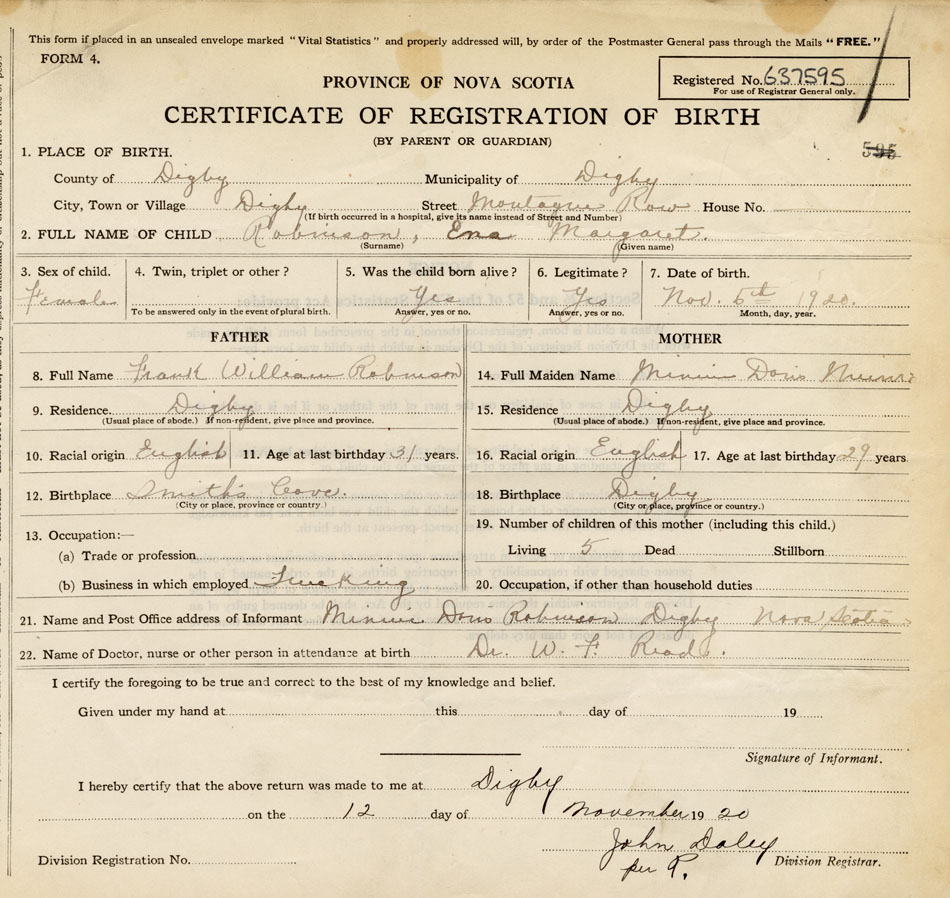 This form if placed in an unsealed envelope marked "Vital Statistics" and properly addressed will, by order of the Postmaster General pass through the Mails "FREE."
FORM 4.
Registered No. 637595
For use of Registrar General only.
PROVINCE OF NOVA SCOTIA
CERTIFICATE OF REGISTRATION OF BIRTH
(BY PARENT OR GUARDIAN)
595
1. PLACE OF BIRTH.
County of Digby Municipality of Digby
City, Town or Village Digby Street Montague Row House No.
(If birth occurred in a hospital, give its name instead of Street and Number)
2. FULL NAME OF CHILD Robinson, Ena Margaret.
(Surname) (Given name)
3. Sex of child. 4. Twin, triplet or other? 5. Was the child born alive? 6. Legitimate? 7. Date of birth.
Female Yes Yes Nov. 5th 1920.
To be answered only in the event of plural birth. Answer, yes or no. Answer, yes or no. Month, day, year.
FATHER MOTHER
8. Full Name Frank William Robinson 14. Full Maiden Name Minnie Doris
9. Residence. Digby 15. Residence Digby
(Usual place of abode.) If non-resident, give place and province. (Usual place of abode.) If non-resident, give place and province.
10. Racial origin English 11. Age at last birthday 31 years. 16. Racial origin English 17. Age at last birthday 29 years.
12. Birthplace Smith's Cove. 18. Birthplace Digby
(City or place, province or country.) (City or place, province or country.)
13. Occupation:— 19. Number of children of this mother (including this child.)
(a) Trade or profession Living 5 Dead Stillborn
(b) Business in which employed Trucking 20. Occupation, if other than household duties
21. Name and Post Office address of Informant Minnie Doris Robinson Digby Nova Scotia
22. Name of Doctor, nurse or other person in attendance at birth Dr. W. F. Read.
I certify the foregoing to be true and correct to the best of my knowledge and belief.
Given under my hand at this day of 19
Signature of Informant.
I hereby certify that the above return was made to me at Digby
on the 12 day of November 19 20
John Daley
Division Registration No. per P. Division Registrar.